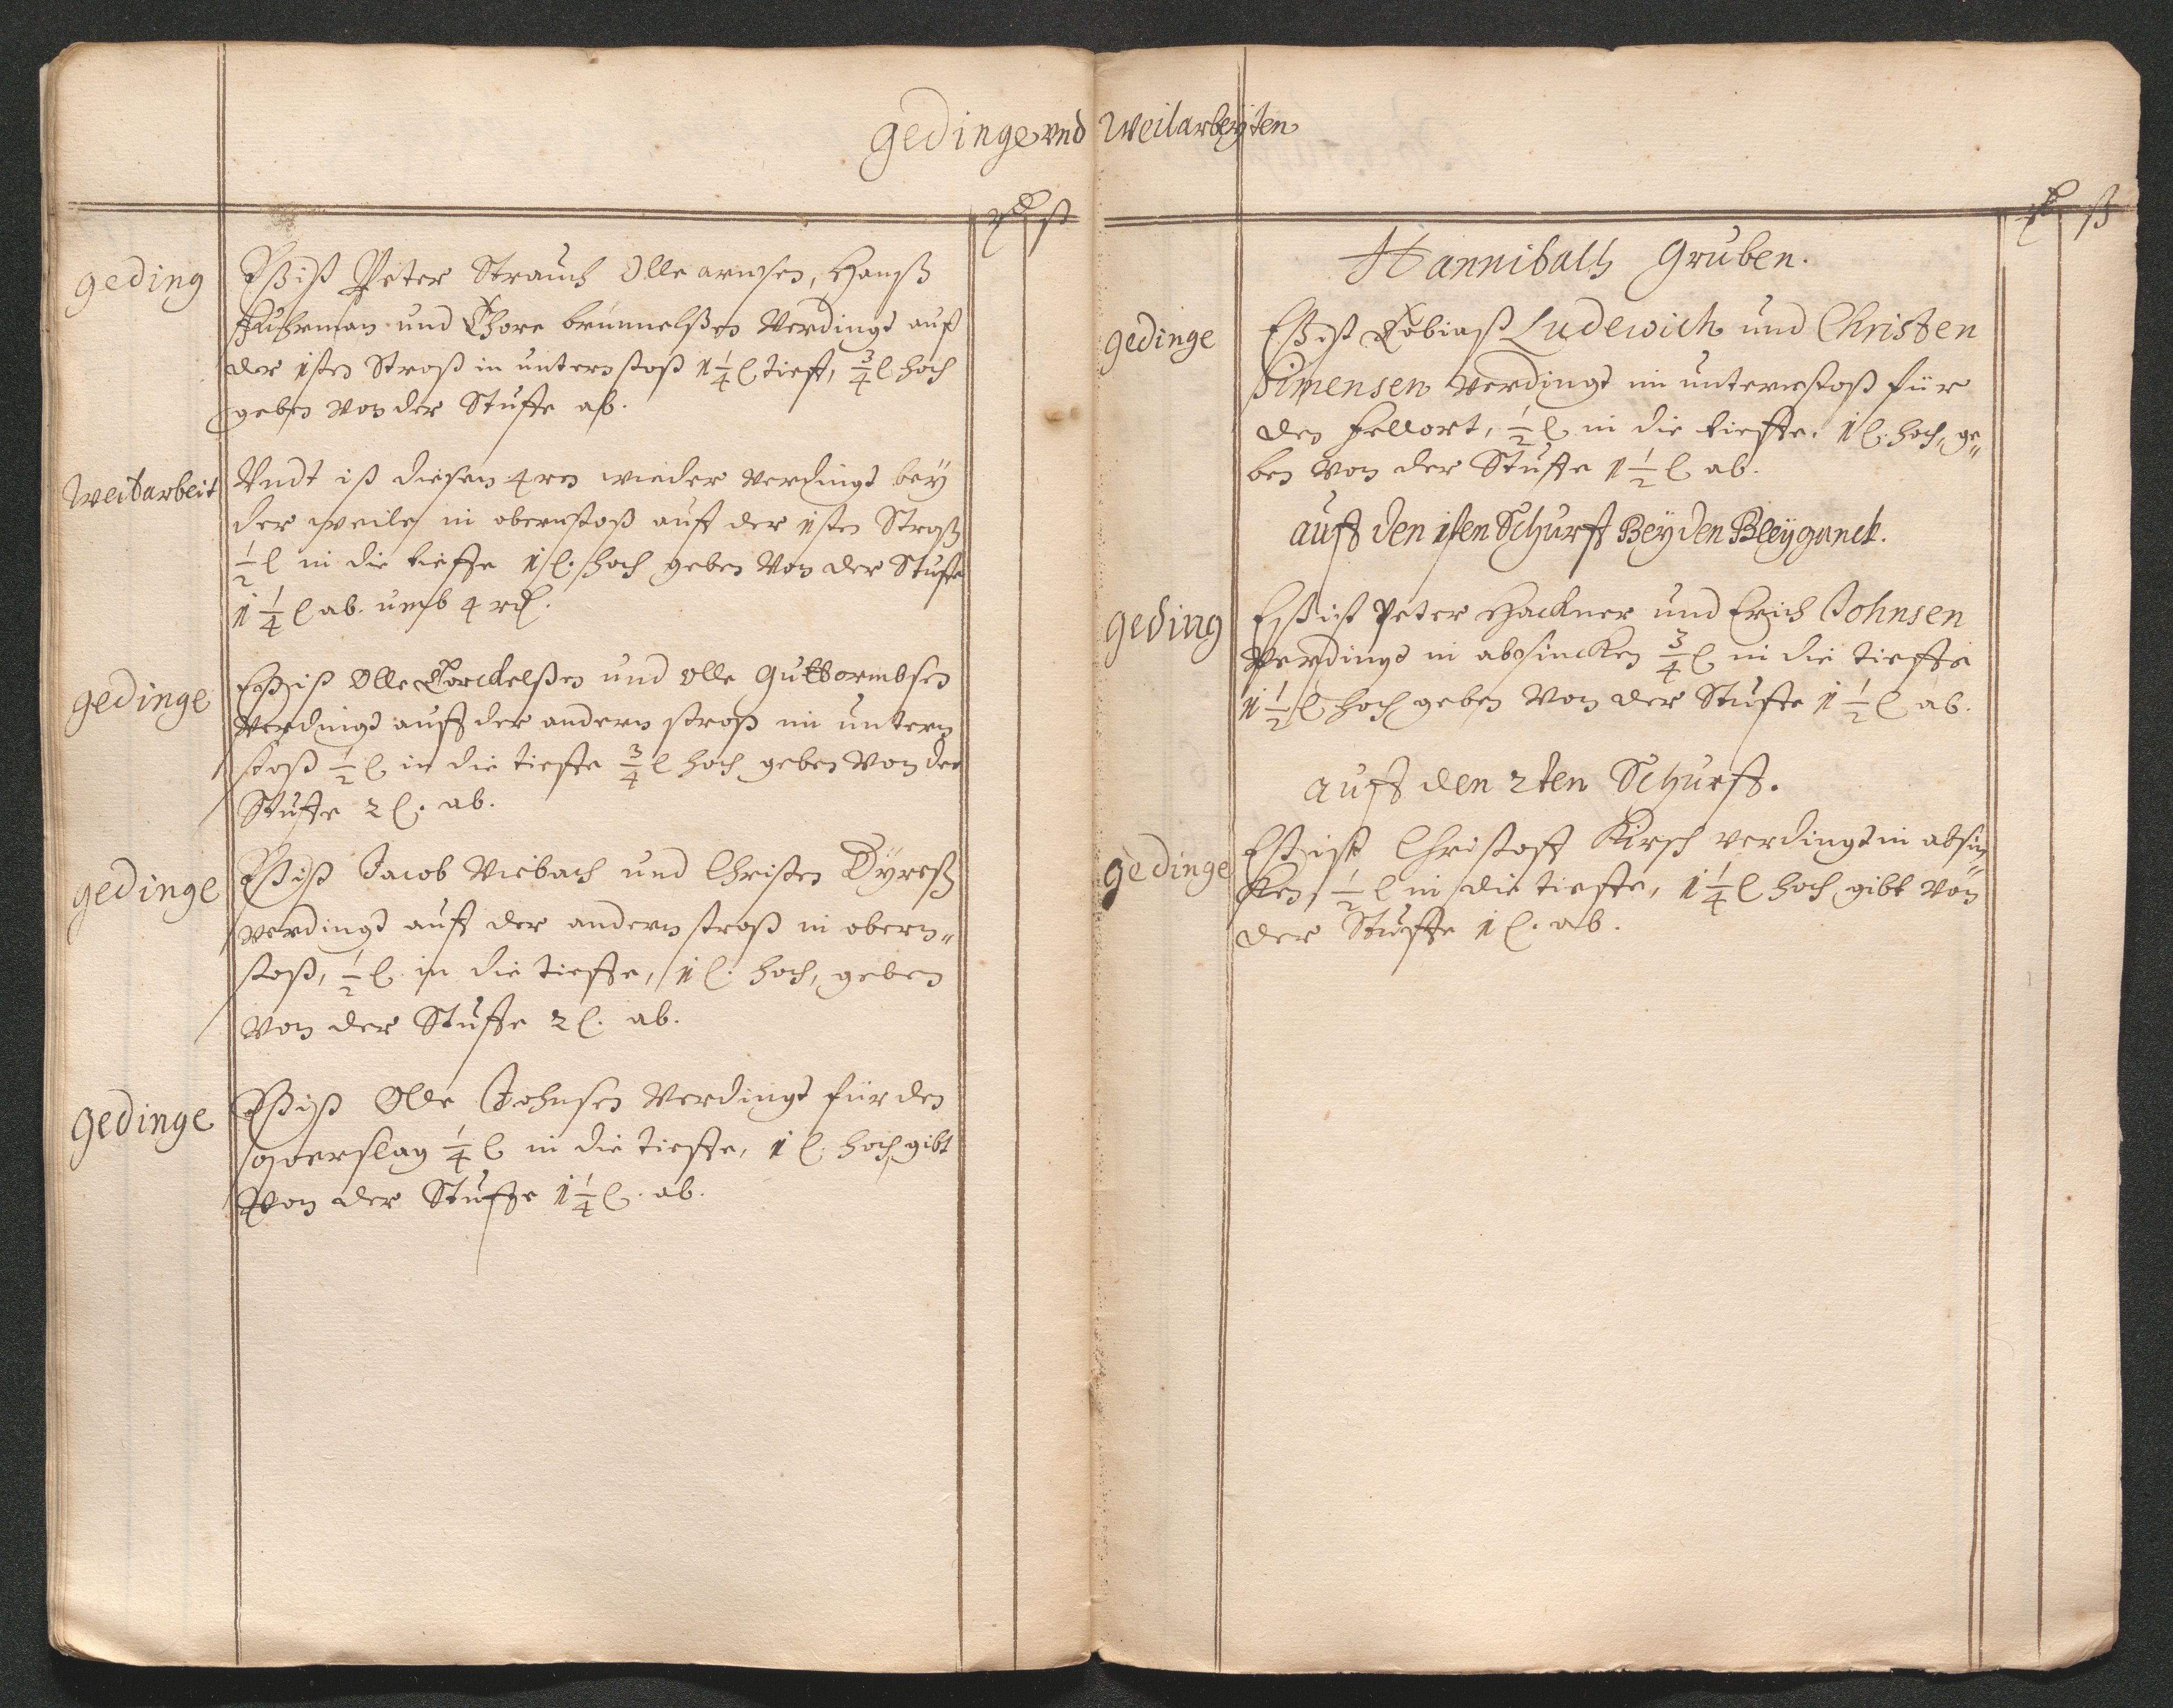 gedinge und Weilarbeÿten
rd ß
geding
Eß ist Peter Strauch Olle arnesen, Hanß
Fuhrman und Thore brunnelßen Verdingt auf
der 1sten Stroß in untern stoß 1 1/4 l tieff, 3/4 l hoch
geben Von der Stuffe ab.
Weilarbeit
Undt ist diesen 4ren wieder Verdingt beÿ
der weile in obernstoß auff der 1sten Stroß
1/2 l in die tieffe 1 l. hoch geben Von der Stuffe
1 1/4 l ab. umb 4 rd.
gedinge
Eß ist Olle Torckelßen und Olle Guttormbsen
Verdingt auff der andern stroß in untern
stoß 1/2 l in die tieffe 3/4 l hoch geben Von der
Stuffe 2 l. ab.
gedinge
Eß ist Jacob Viebach und Christen Dÿreß
Verdingt auff der andern stroß in obern„
stoß, 1/2 l. in die tieffe, 1 l. hoch, geben
Von der Stuffe 2 l. ab.
gedinge
Eß ist Olle Johnsen Verdingt für den
overslag 1/4 l in die tieffe, 1 l. hoch, gibt
Von der Stuffe 1 1/4 l. ab.
rd ß
Hanniballs Gruben.
gedinge
Eß ist Tobiaß Ludewich und Christen
Simensen Verdingt in unternstoß für
den Fellort, 1/2 l in die tieffe. 1 l. hoch, ge„
ben Von der Stuffe 1 1/2 l ab.
auff den 1sten Schurff Beÿ den Bleÿganck.
geding
Eß ist Peter Hackner und Erich Johnsen
Verdingt in absincken 3/4 l in die tieffe
1 1/2 l hoch geben Von der Stuffe 1 1/2 l ab.
auff den 2ten Schurff.
gedinge
Eß ist Christoff Kirsch verdingt in absin„
ken, 1/2 l in die tieffe, 1 1/4 l hoch gibt Von
der Stuffe 1 l. ab.